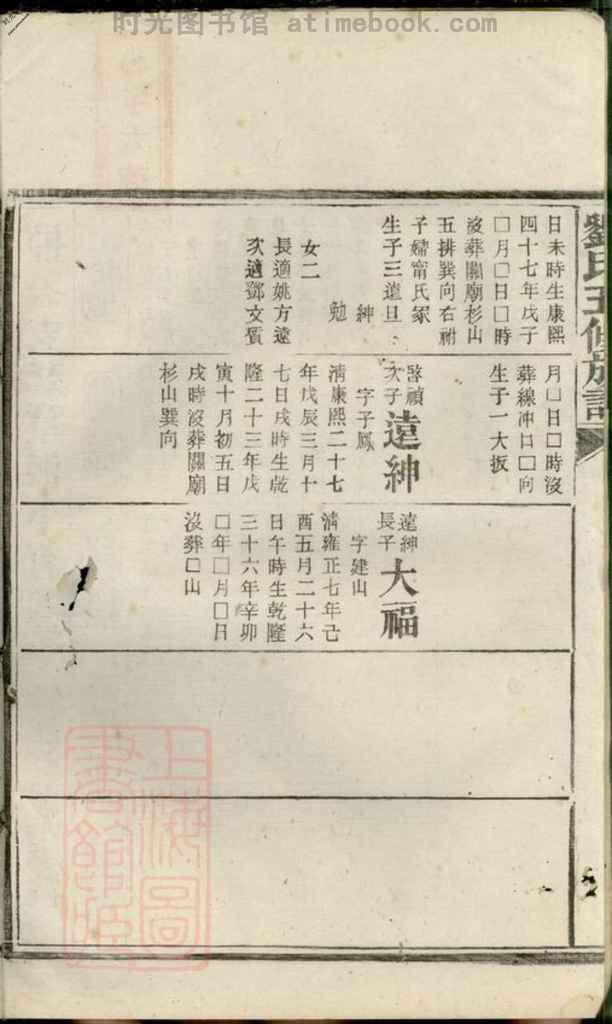 时光图书馆 atimebook.com
劉氏五修族譜
日未時生康熙
四十七年戊子
□月□日□時
沒葬關廟杉山
五排巽向右祔
子婦甯氏冢
生子三遠旦
紳
勉
女二
長適姚方遠
次適鄧文質
月□日□時沒
葬線冲□□向
生子一大扳
啓禎次子遠紳
字子鳳
清康熙二十七
年戊辰三月十
七日戌時生乾
隆二十三年戊
寅十月初五日
戌時沒葬關廟
杉山巽向
遠紳長子大福
字建山
清雍正七年己
酉五月二十六
日午時生乾隆
三十六年辛卯
□年□月□日
沒葬□山
上海圖
書館藏